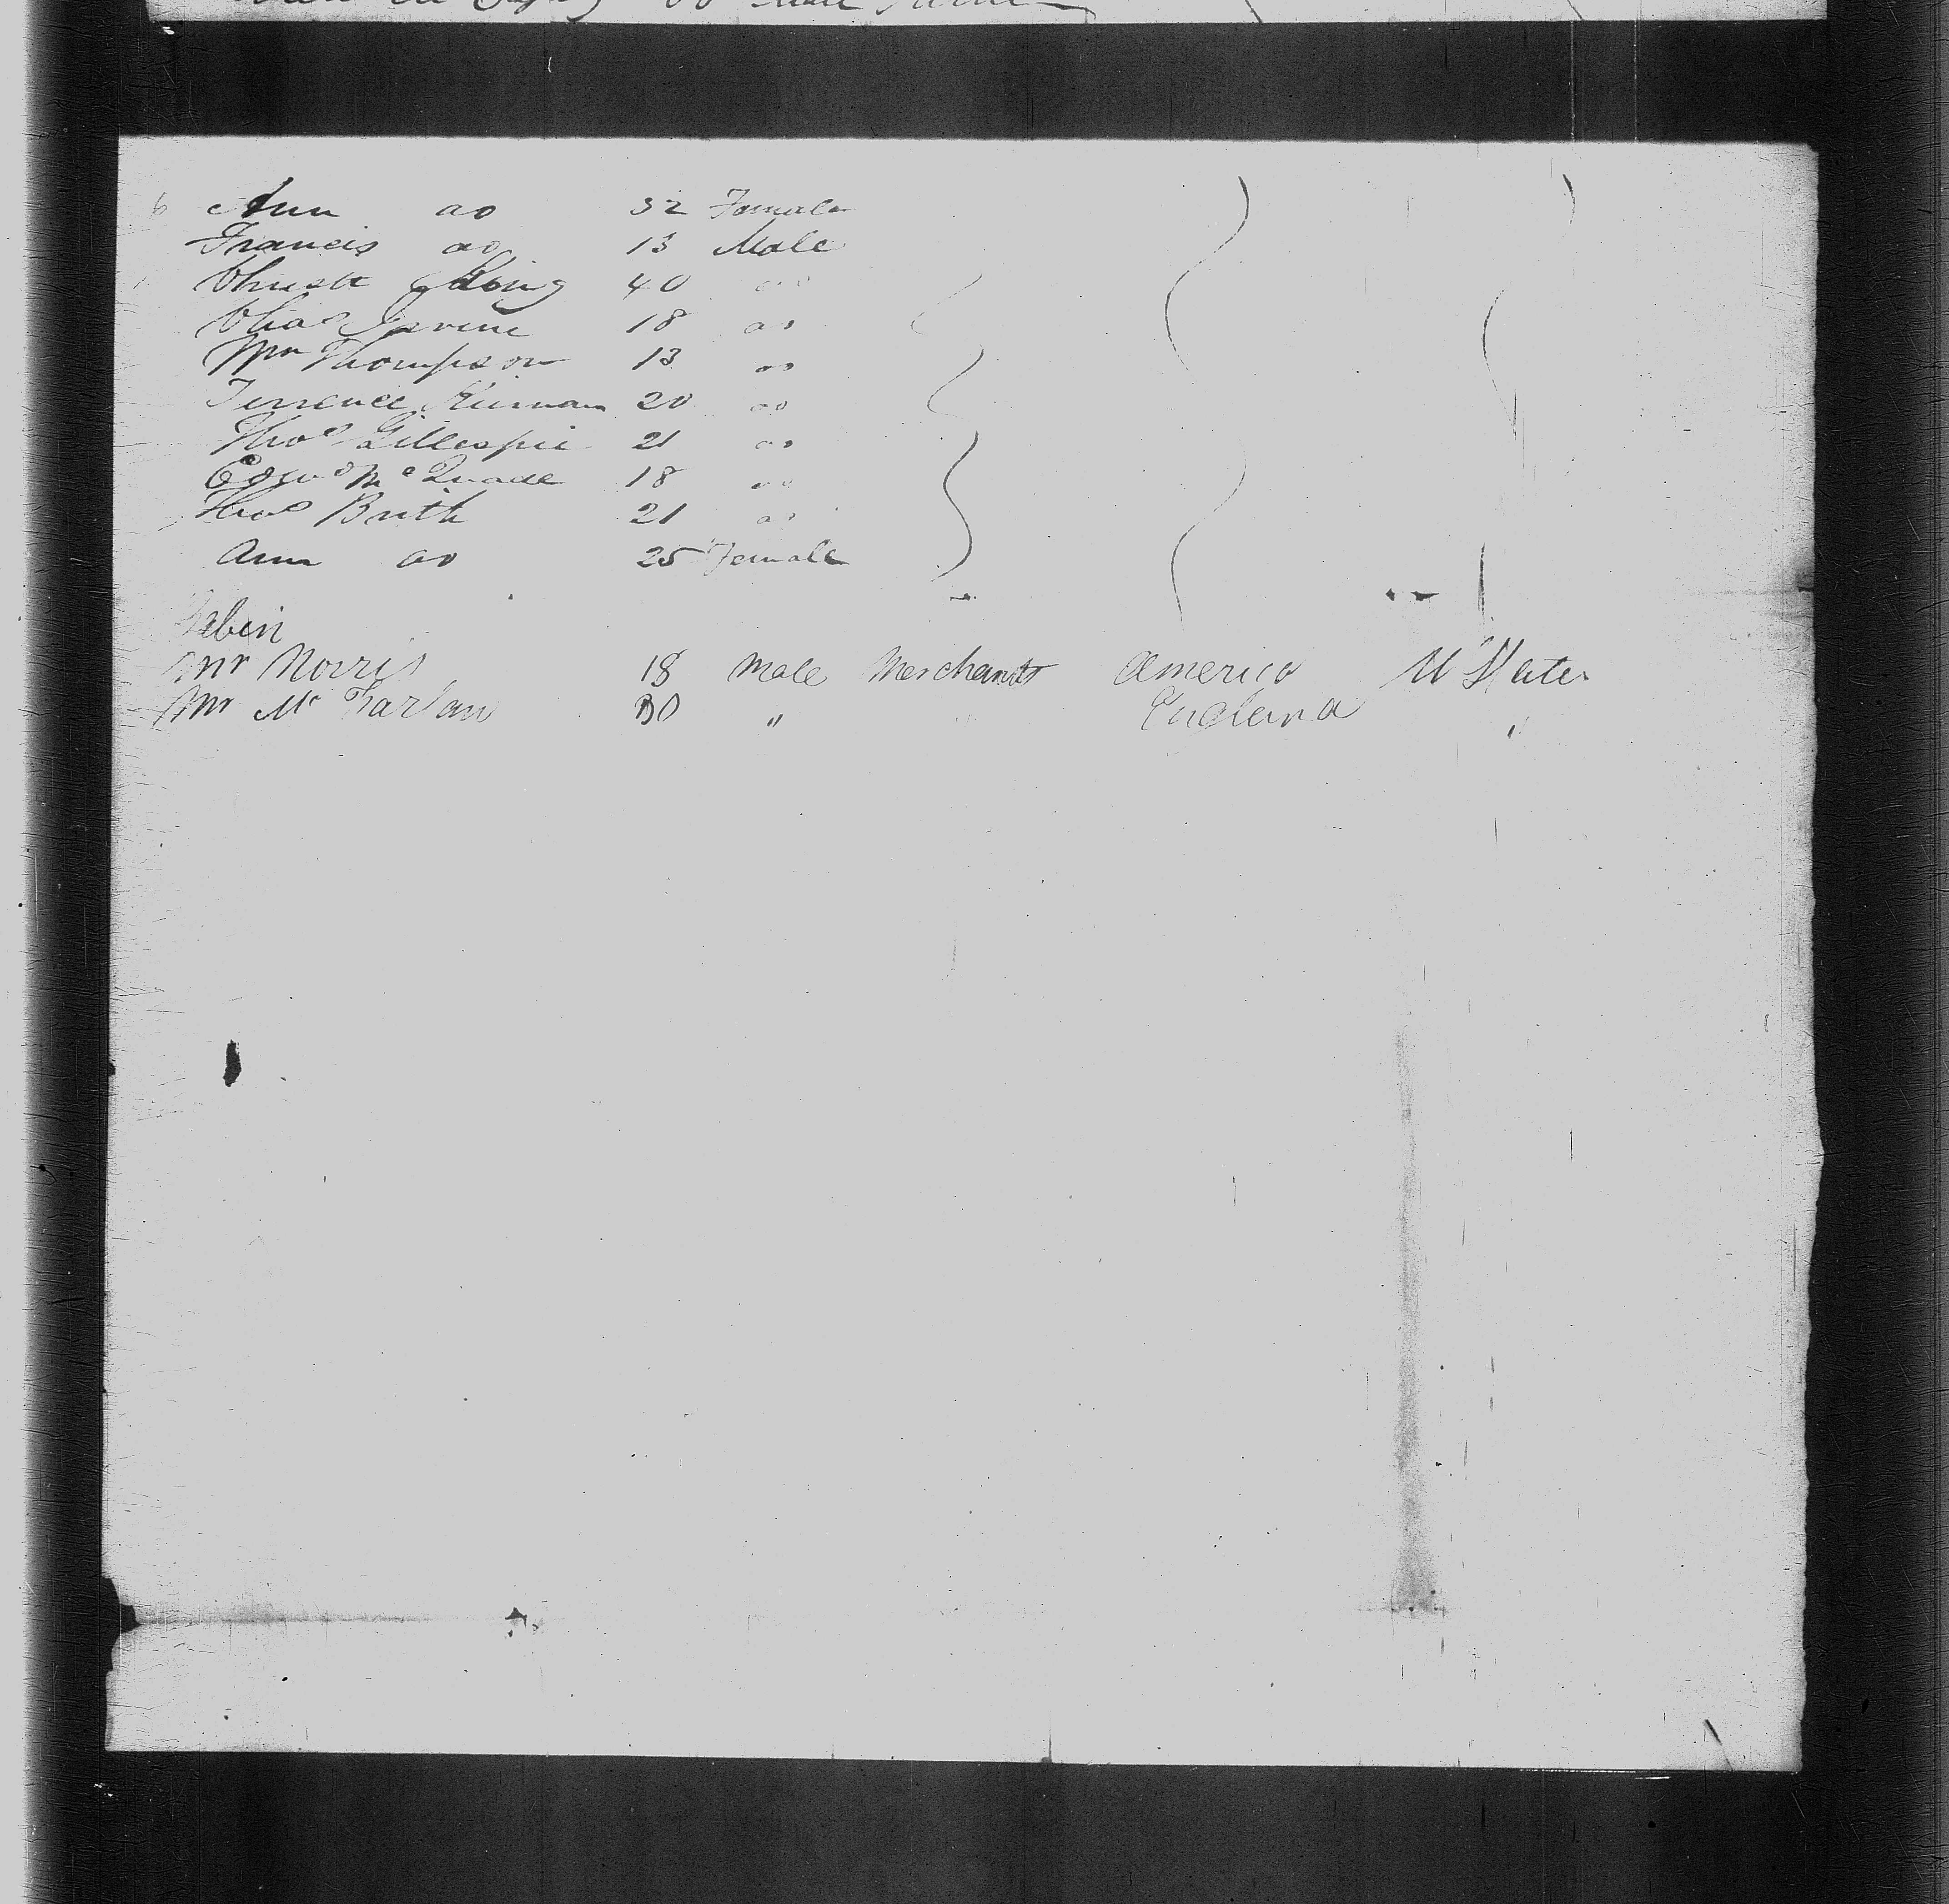 Ann do 32 Female
Francis do 13 Male
King 40 do
Chas Irvine 18 do
Wm Thompson 13 do
Terrence Kiernan 20 do
Thos Gillespie 21 do
Edwd McQuade 18 do
Thos 21 do
Ann do 25 Female
Cabin
Mr Norris 18 Male Merchants America U States
Mr Mc Farlan 30 " " England "